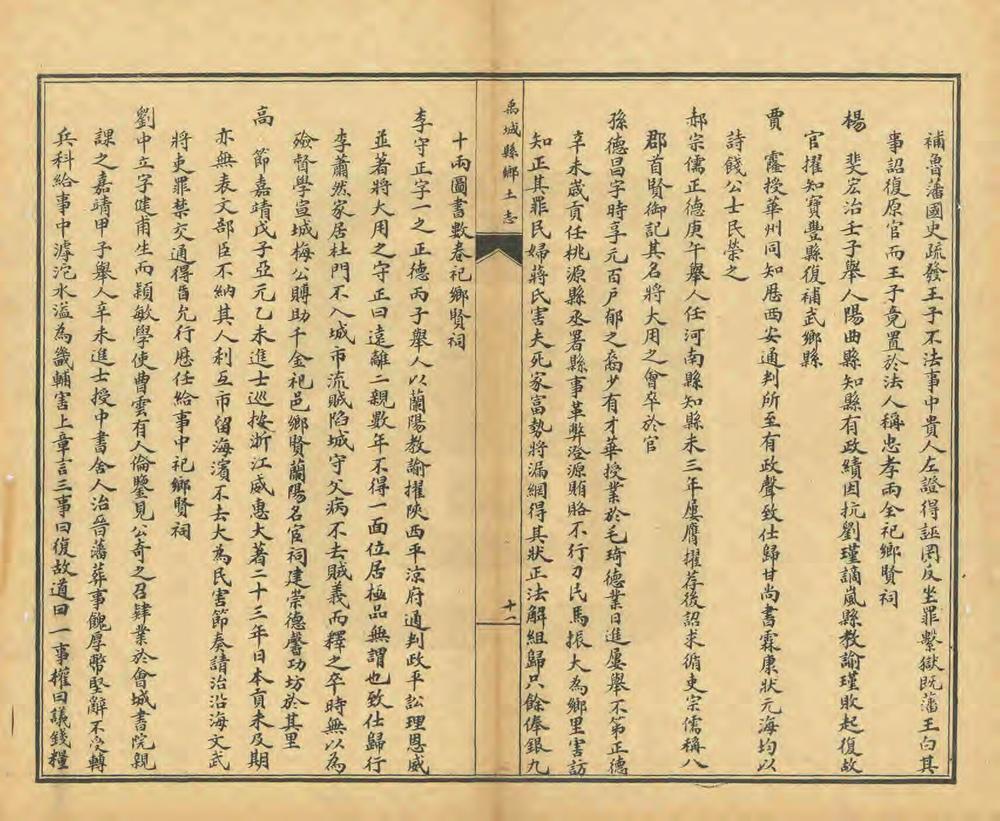 補魯藩國史疏發王子不法事中貴人左證得誣罔反坐罪繫獄既藩王白其
事詔復原官而王子竟置於法人稱忠孝兩全祀鄉賢祠
楊　斐宏治壬子舉人陽曲縣知縣有政績因抗劉瑾謫嵐縣教諭瑾敗起復故
官擢知寶豐縣復補武鄉縣
賈　霳授華州同知歷西安通判所至有政聲致仕歸甘尚書霖康狀元海均以
詩餞公士民榮之
郝宗儒正德庚午舉人任河南縣知縣未三年屢膺擢荐後詔求循吏宗儒稱八
郡首賢御記其名將大用之會卒於官
孫德昌字時享元百戶郁之裔少有才華授業於毛琦德業日進屢舉不第正德
辛未歲貢任桃源縣丞署縣事革弊澄源賄賂不行刁民馬振大為鄉里害訪
知正其罪民婦蔣氏害夫死家富勢將漏網得其狀正法解組歸只餘俸銀九
禹城縣鄉土志
十一
十兩圖書數卷祀鄉賢祠
李守正字一之正德丙子舉人以蘭陽教諭擢陝西平涼府通判政平訟理恩威
並著將大用之守正曰遠離二親數年不得一面位居極品無謂也致仕歸行
李蕭然家居杜門不入城市流賊陷城守父病不去賊義而釋之卒時無以為
殮督學宣城梅公賻助千金祀邑鄉賢蘭陽名宦祠建崇德馨功坊於其里
高　節嘉靖戊子亞元乙未進士巡按浙江威惠大著二十三年日本貢未及期
亦無表文部臣不納其人利互市留海濱不去大為民害節奏請治沿海文武
將吏罪禁交通得旨允行歷任給事中祀鄉賢祠
劉中立字健甫生而穎敏學使曹雲有人倫鑒見公奇之召肄業於會城書院親
課之嘉靖甲子舉人辛未進士授中書舍人治晉藩葬事餽厚幣堅辭不受轉
兵科給事中滹沱水溢為畿輔害上章言三事曰復故道曰一事權曰議錢糧